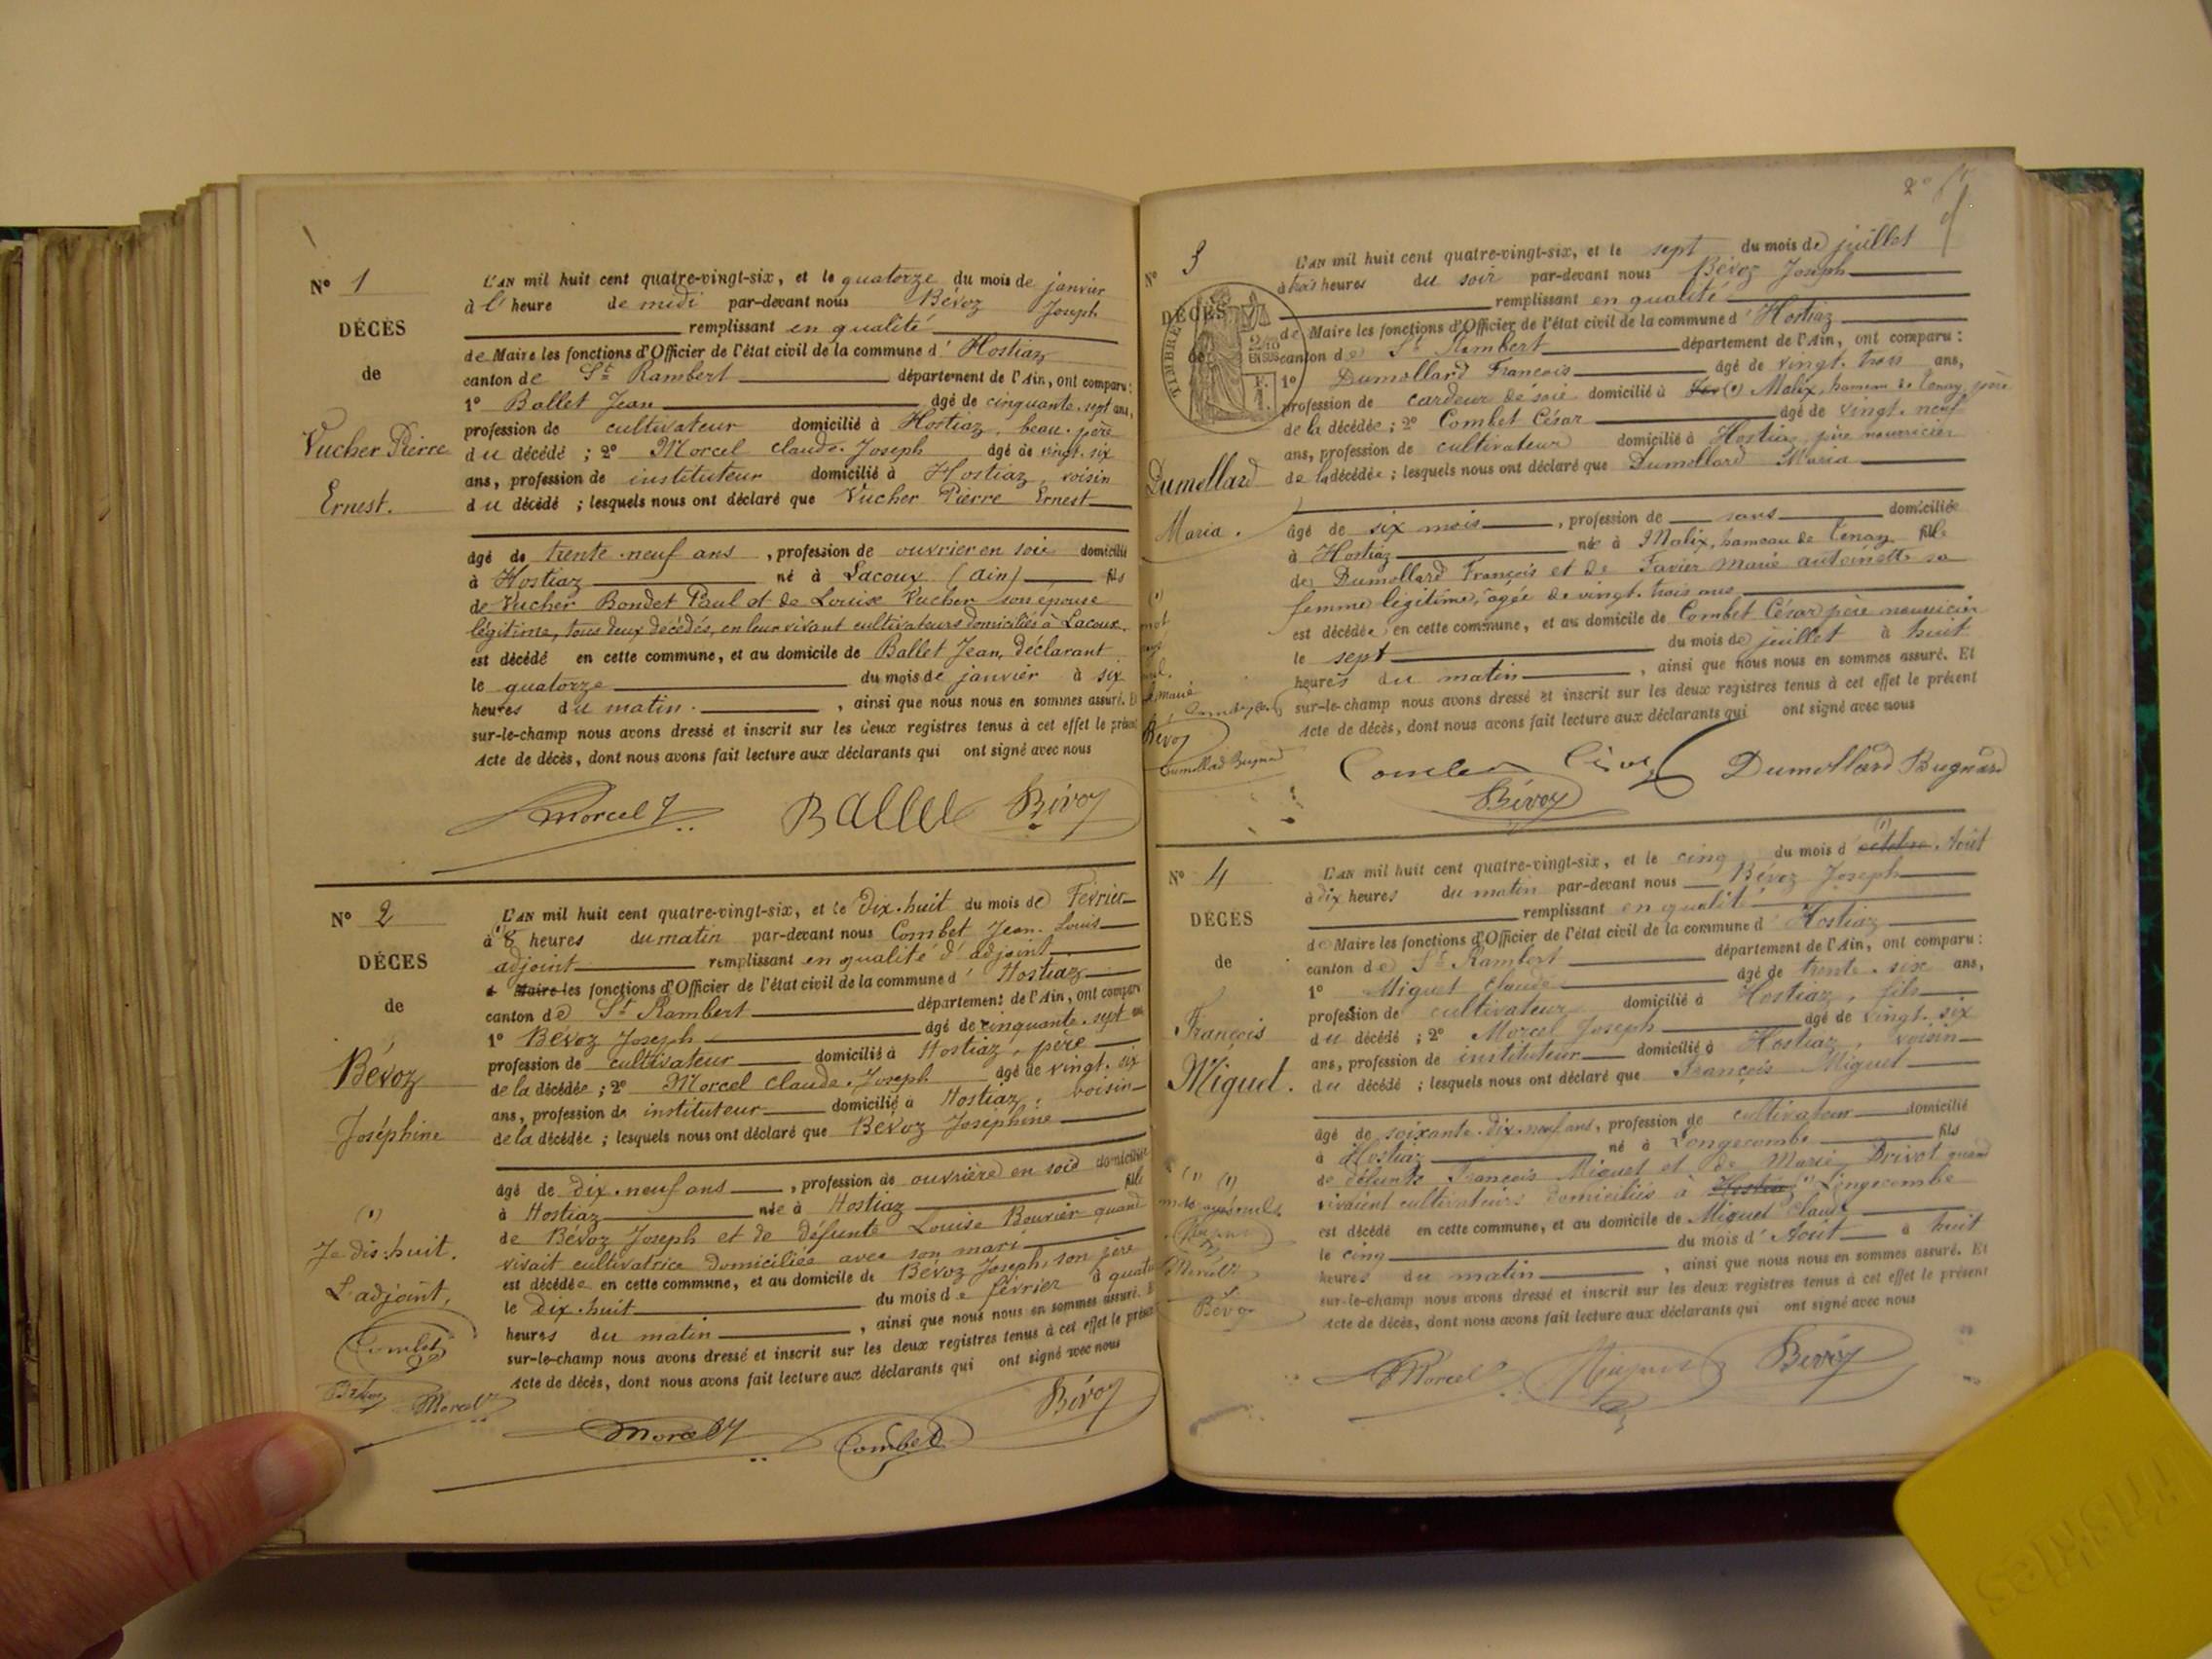 N° 1
DÉCÈS
de
Vucher Pierre
Ernest.
L'AN mil huit cent quatre-vingt-six, et le quatorze du mois de janvier
à l' heure de midi par-devant nous Bévoz Joseph
remplissant en qualité
de Maire les fonctions d'Officier de l'état civil de la commune d' Hostiaz
canton de St Rambert département de l'Ain, ont comparu :
1° Ballet Jean âgé de cinquante-sept ans,
profession de cultivateur domicilié à Hostiaz, beau-père
du décédé ; 2° Morcel Claude-Joseph âgé de vingt-six
ans, profession de instituteur domicilié à Hostiaz, voisin
du décédé ; lesquels nous ont déclaré que Vucher Pierre Ernest
âgé de trente-neuf ans, profession de ouvrier en soie domicilié
à Hostiaz né à Lacoux (Ain) fils
de Vucher Bondet Paul et de Louise Vucher son épouse
légitime, tous deux décédés, en leur vivant cultivateurs domiciliés à Lacoux.
est décédé en cette commune, et au domicile de Ballet Jean, déclarant
le quatorze du mois de janvier à six
heures du matin, ainsi que nous nous en sommes assuré. Et
sur-le-champ nous avons dressé et inscrit sur les deux registres tenus à cet effet le présent
Acte de décès, dont nous avons fait lecture aux déclarants qui ont signé avec nous
Morcel J Ballet Bévoz
N° 2
DÉCÈS
de
Bévoz
Joséphine
(1)
Je dis huit.
L'adjoint,
Combet
Bévoz Morcel
L'AN mil huit cent quatre-vingt-six, et le dix-huit du mois de Février
à (1) 8 heures du matin par-devant nous Combet Jean-Louis
adjoint remplissant en qualité d'adjoint
de Maire les fonctions d'Officier de l'état civil de la commune d' Hostiaz
canton de St Rambert département de l'Ain, ont comparu
1° Bévoz Joseph âgé de cinquante-sept ans
profession de cultivateur domicilié à Hostiaz, père
de la décédée ; 2° Morcel Claude-Joseph âgé de vingt-six
ans, profession de instituteur domicilié à Hostiaz, voisin
de la décédée ; lesquels nous ont déclaré que Bévoz Joséphine
âgé de dix-neuf ans, profession de ouvrière en soie domiciliée
à Hostiaz née à Hostiaz fille
de Bévoz Joseph et de défunte Louise Bouvier quand
vivait cultivatrice domiciliée avec son mari
est décédée en cette commune, et au domicile de Bévoz Joseph, son père
le dix-huit du mois de février à quatre
heures du matin, ainsi que nous nous en sommes assuré. Et
sur-le-champ nous avons dressé et inscrit sur les deux registres tenus à cet effet le présent
Acte de décès, dont nous avons fait lecture aux déclarants qui ont signé avec nous
Morcel J Combet Bévoz
2e
N° 3
DÉCÈS
de
TIMBRE
2/10
EN SUS
F.
1.
Dumollard
Maria.
(1)
mot
Bévoz
Dumollard Bugnard
L'AN mil huit cent quatre-vingt-six, et le sept du mois de juillet
à trois heures du soir par-devant nous Bévoz Joseph
remplissant en qualité
de Maire les fonctions d'Officier de l'état civil de la commune d' Hostiaz
canton de St Rambert département de l'Ain, ont comparu :
1° Dumollard François âgé de vingt-trois ans,
profession de cardeur de soie domicilié à (1) Malix, hameau de Tenay, père
de la décédée ; 2° Combet César âgé de vingt-neuf
ans, profession de cultivateur domicilié à Hostiaz, père nourricier
de la décédée ; lesquels nous ont déclaré que Dumollard Maria
âgé de six mois, profession de sans domiciliée
à Hostiaz née à Malix, hameau de Tenay fille
de Dumollard François et de Favier Marie antoinette sa
femme légitime, âgée de vingt-trois ans
est décédée en cette commune, et au domicile de Combet César père nourricier
le sept du mois de juillet à huit
heures du matin, ainsi que nous nous en sommes assuré. Et
sur-le-champ nous avons dressé et inscrit sur les deux registres tenus à cet effet le présent
Acte de décès, dont nous avons fait lecture aux déclarants qui ont signé avec nous
Combet César Dumollard Bugnard
Bévoz
N° 4
DÉCÈS
de
François
Miguet.
(1) (1)
Bévoz
L'AN mil huit cent quatre-vingt-six, et le cinq du mois d' octobre (1) Août
à dix heures du matin par-devant nous Bévoz Joseph
remplissant en qualité
de Maire les fonctions d'Officier de l'état civil de la commune d' Hostiaz
canton de St Rambert département de l'Ain, ont comparu :
1° Miguet Claude âgé de trente-six ans,
profession de cultivateur domicilié à Hostiaz, fils
du décédé ; 2° Morcel Joseph âgé de vingt-six
ans, profession de instituteur domicilié à Hostiaz, voisin
du décédé ; lesquels nous ont déclaré que François Miguet
âgé de soixante-dix-neuf ans, profession de cultivateur domicilié
à Hostiaz né à Longecombe fils
de défunts François Miguet et de Marie Drivot quand
vivaient cultivateurs domiciliés à Hostiaz (1) Longecombe
est décédé en cette commune, et au domicile de Miguet Claude
le cinq du mois d' Août à huit
heures du matin, ainsi que nous nous en sommes assuré. Et
sur-le-champ nous avons dressé et inscrit sur les deux registres tenus à cet effet le présent
Acte de décès, dont nous avons fait lecture aux déclarants qui ont signé avec nous
Morcel Miguet Bévoz